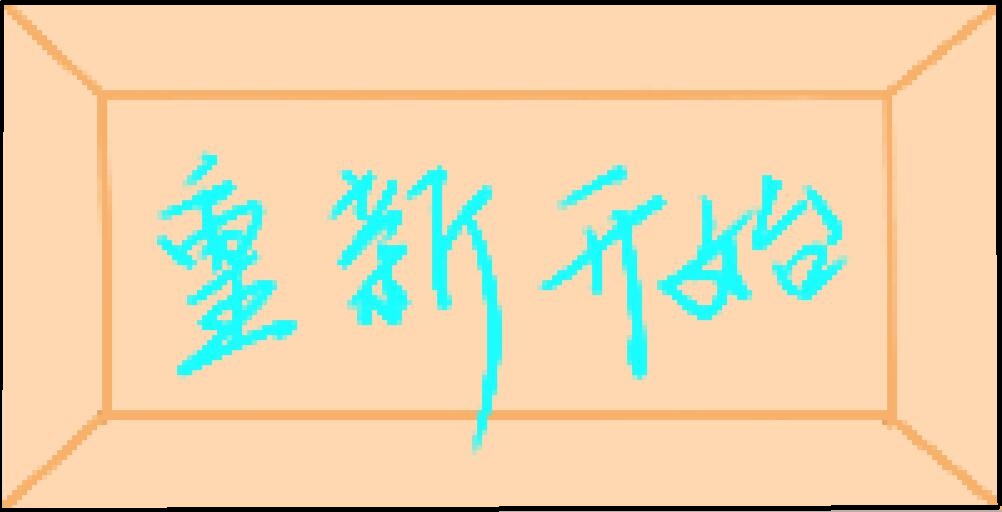 重新开始